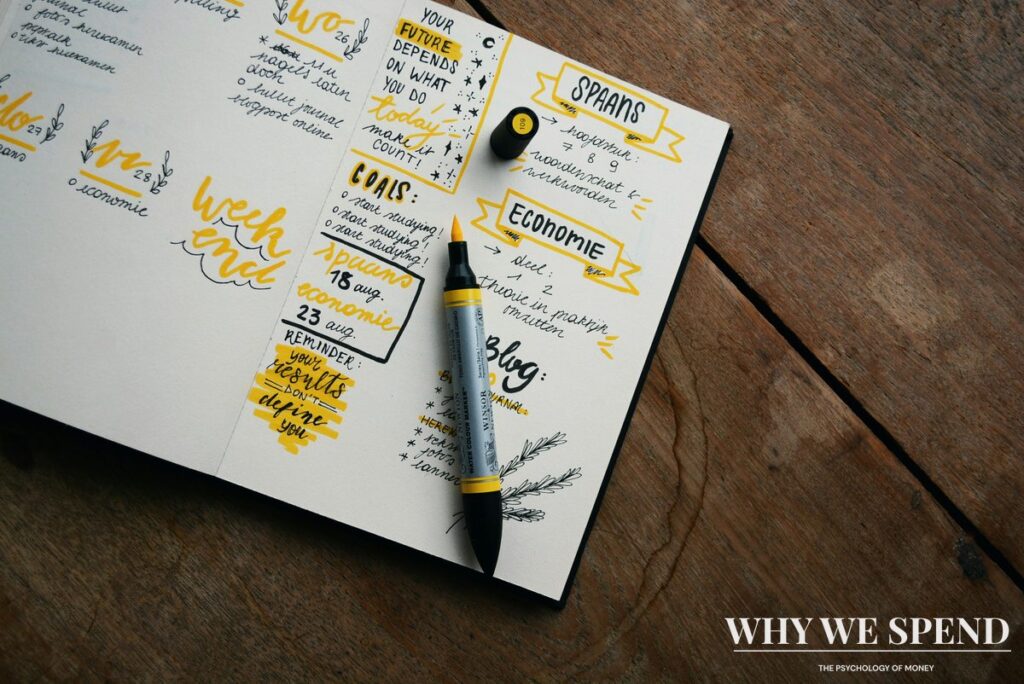 bullet
o foto's
herexamen
wo
26
* uu
nagels laten
doen
o bullet journal
blogpost online
do
27
vr
28
o economie
week
end
YOUR
FUTURE
DEPENDS
ON WHAT
YOU DO
today
make it
COUNT!
GOALS:
o start studying!
o start studying!
o start studying!
spaans
18 aug.
economie
23 aug.
REMINDER:
your
results
DON'T
define
you
SPAANS
→ hoofdstuk:
7 8 9
woordenschat &
werkwoorden
ECONOMIE
→ deel:
1 2
theorie in praktijk
omzetten
Blog:
JOURNAL:
109
WINSOR
WATER COLOUR MARKER
WHY WE SPEND
THE PSYCHOLOGY OF MONEY